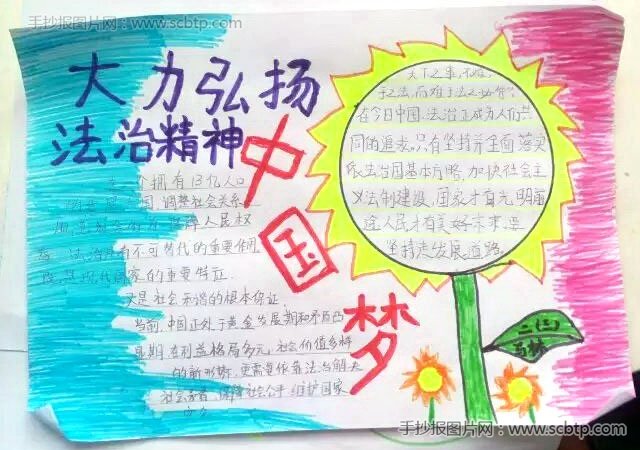 手抄报图片网:www.scbtp.com
大力弘扬
法治精神
中
国
梦
个拥有13亿人口
国,调整社会关系
障人民权
法治具有不可替代的重要作用
是现代国家的重要特征
又是社会和谐的根本保证
当前,中国正处于黄金发展期和矛盾凸
显期,在利益格局多元,社会价值多样
的新形势,更需要依靠法
社会公平,维护国家
天下之事,不难
于立法,而难于法之必行
在今日中国,法治正成为人们共
同的追求。只有坚持并全面落实
依法治国基本方略,加快社会主
义法制建设,国家才有光明前
途,人民才有美好未来,要
坚持走发展道路。
二(三)
手抄报图片网:www.scbtp.com